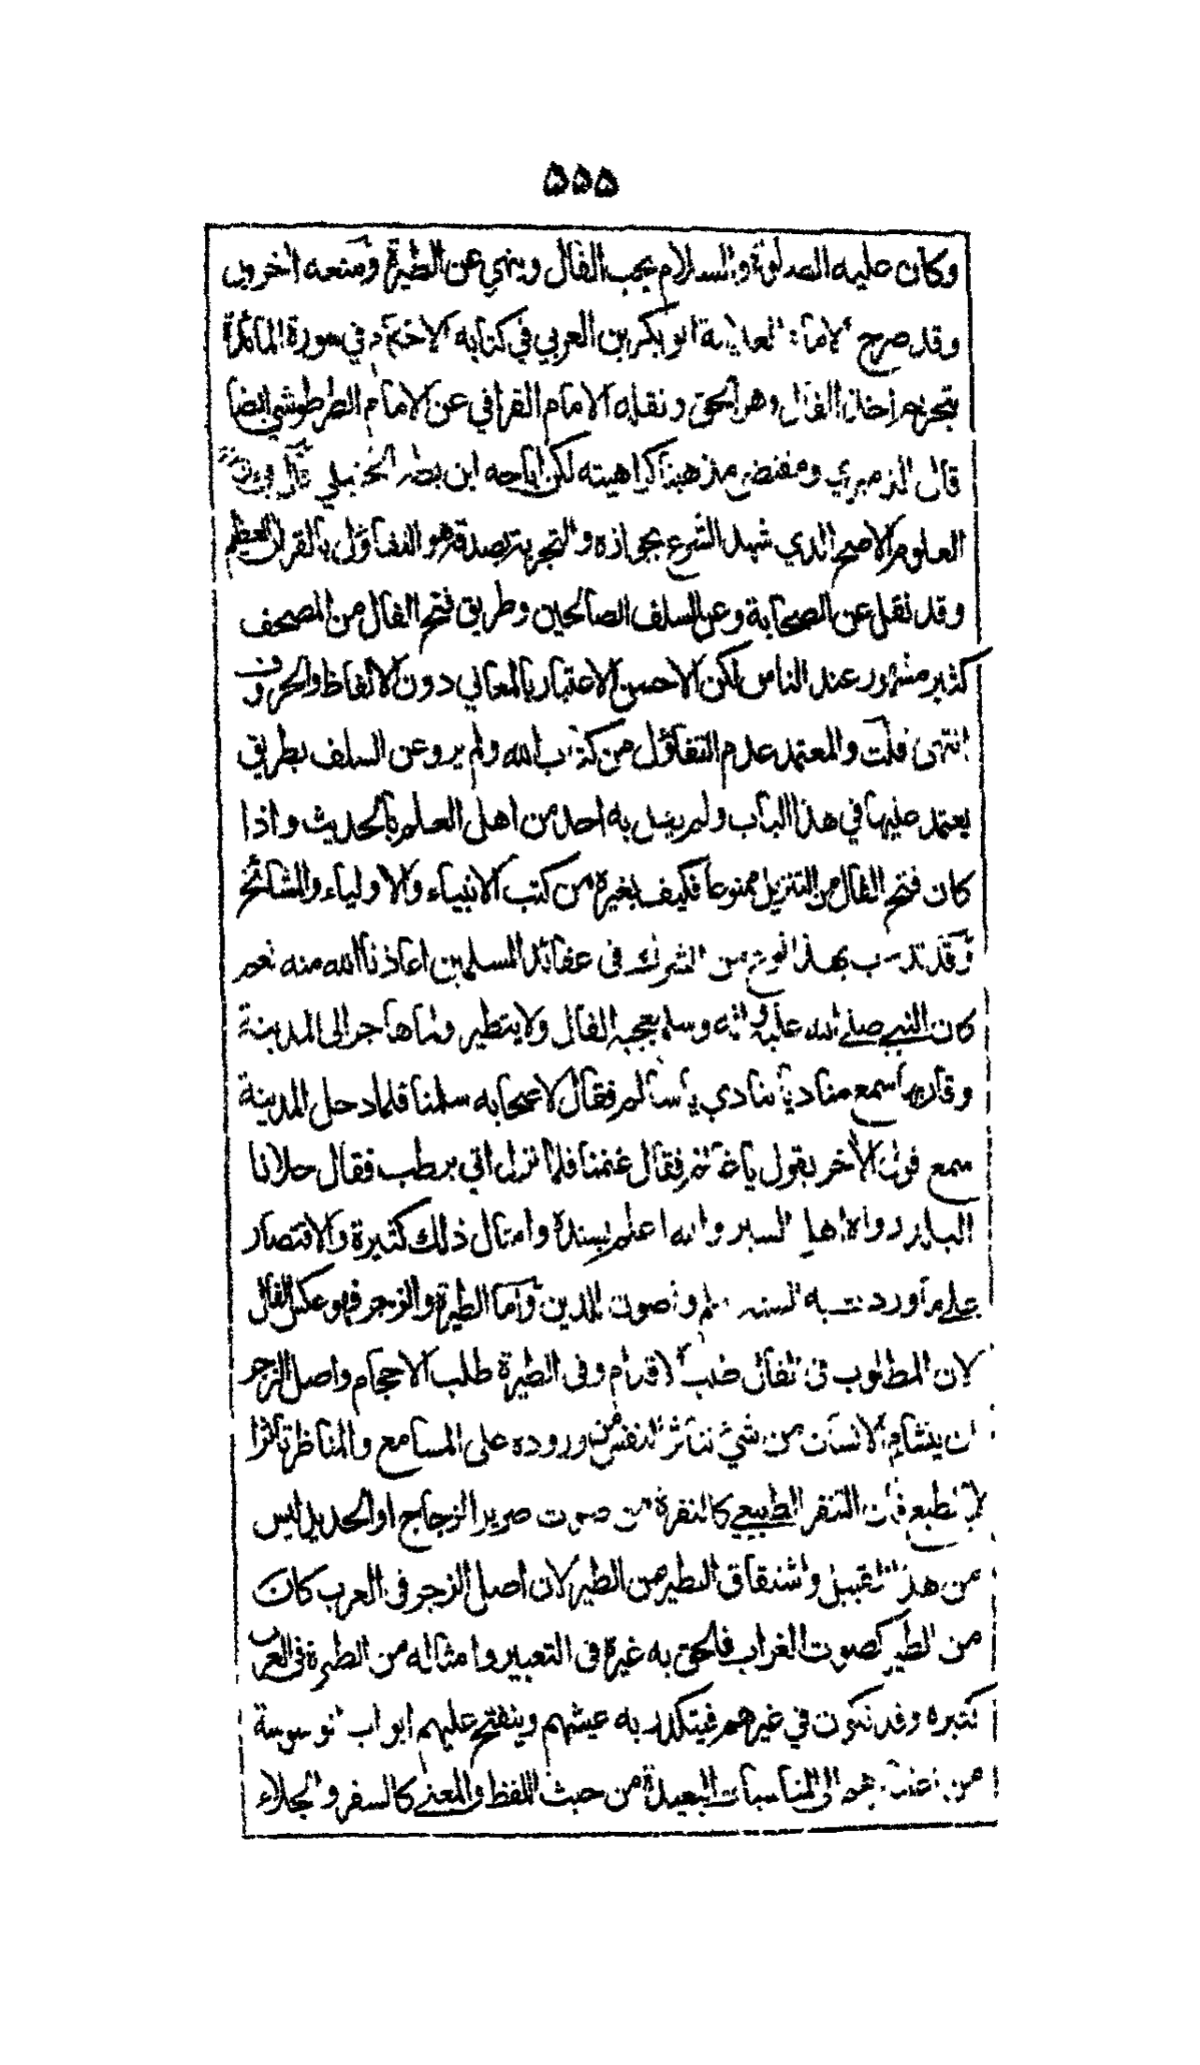 ٥٥٥
وكان عليه الصلوة والسلام يحب الفال وينهي عن الطيرة ومنعه اخرون
وقد صرح الامام العلامة ابو بكر بن العربي في كتابه الاحكام في سورة المائدة
بتحريم اخذ الفال وهو الحق ونقله الامام القرافي عن الامام الطرطوشي ايضا
قال الدميري ومقتضى مذهبنا كراهيته لكن اباحه ابن بطه الحنبلي قال في مدينة
العلوم الاصح الذي شهد الشرع بجوازه والتجربة بصدقه هو التفاؤل بالقران العظيم
وقد نقل عن الصحابة وعن السلف الصالحين وطريق فتح الفال من المصحف
كثير مشهور عند الناس لكن الاحسن الاعتبار بالمعاني دون الالفاظ والحروف
انتهى قلت والمعتمد عدم التفاؤل من كتاب الله ولم يرو عن السلف بطريق
يعتمد عليها في هذا الباب ولم يقل به احد من اهل العلم بالحديث واذا
كان فتح الفال من التنزيل ممنوعا فكيف بغيره من كتب الانبياء والاولياء والمشائخ
وقد تسرب بهذا النوع من الشرك في عقائد المسلمين اعاذنا الله منه نعم
كان النبي صلى الله عليه واله وسلم يعجبه الفال ولا يتطير ولما هاجر الى المدينة
وقاربها سمع مناديا ينادي يا سالم فقال لاصحابه سلمنا فلما دخل المدينة
سمع قول الاخر يقول يا غانم فقال غنمنا فلما نزل اتي برطب فقال حلا لنا
البلد رواه اهل السير والله اعلم بسنده وامثال ذلك كثيرة والاقتصار
على ما وردت به السنة اسلم واصون للدين واما الطيرة والزجر فهو عكس الفال
لان المطلوب في الفال طلب الاقدام وفي الطيرة طلب الاحجام واصل الزجر
ان يتشام الانسان من شيء تتاثر النفس من وروده على المسامع والمناظر تاثرا
لا بالطبع فان التنفر الطبيعي كالنفرة من صوت صرير الزجاج او الحديد ليس
من هذا القبيل واشتقاق التطير من الطير لان اصل الزجر في العرب كان
من الطير كصوت الغراب فالحق به غيره في التعبير وامثاله من الطيرة في العرب
كثيرة وقد تكون في غيرهم فيتكدر به عيشهم وينفتح عليهم ابواب الوسوسة
من اعتبارهم الى المناسبات البعيدة من حيث اللفظ والمعنى كالسفر والجلاء